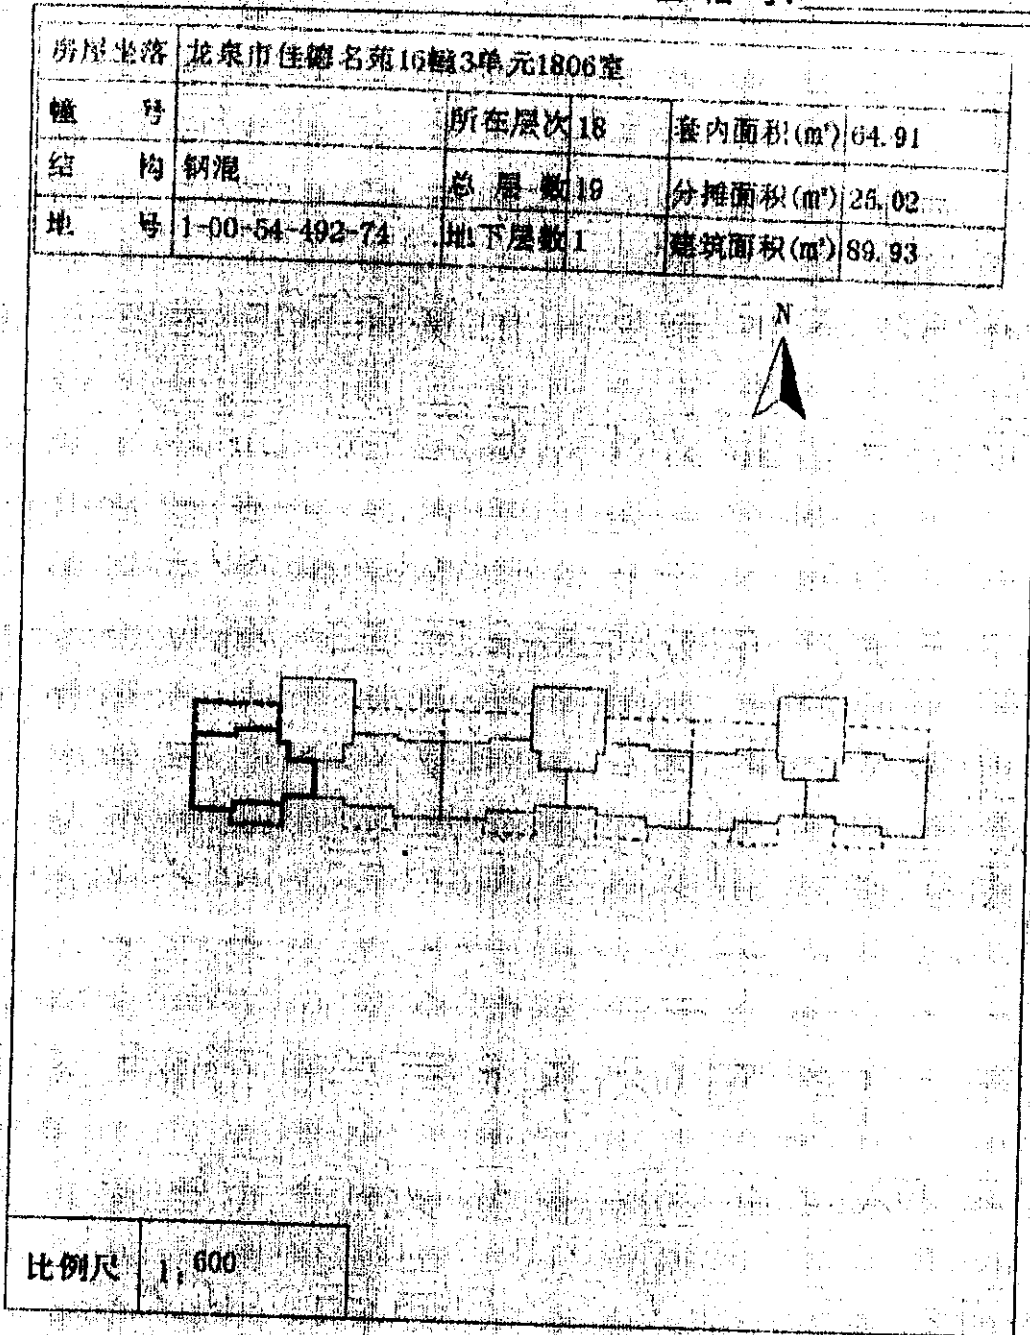 房屋坐落 龙泉市佳德名苑16幢3单元1806室
幢 号 所在层次 18 套内面积(m²) 64.91
结 构 钢混 总 层 数 19 分摊面积(m²) 25.02
地 号 1-00-54-492-74 地下层数 1 建筑面积(m²) 89.93
N
比例尺 1:600